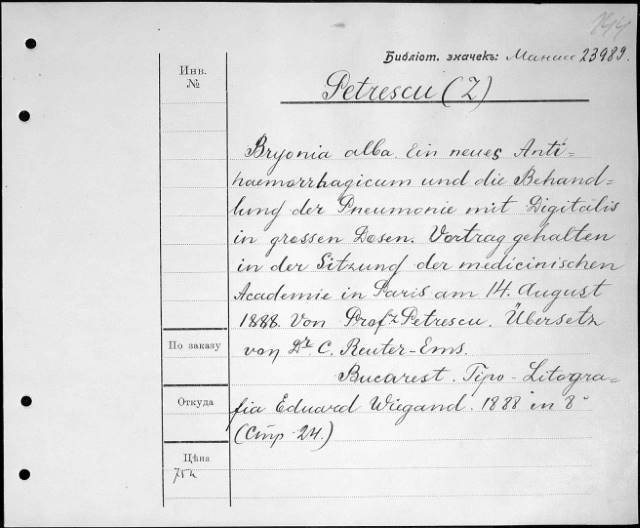 Библіот. значекъ: 23989.
Инв.
№
Petrescu (Z)
Bryonia alba. Ein neues Anti=
haemorrhagicum und die Behand=
lung der Pneumonie mit Digitalis
in grossen Dosen. Vortrag gehalten
in der Sitzung der medicinischen
Academie in Paris am 14. August
1888. Von Prof Z Petrescu. Übersetz
von Dr C. Reuter-Ems.
Bucarest. Tipo-Litogra-
fia Eduard Wiegand. 1888 in 8°
(Стр. 24.)
По заказу
Откуда
Цѣна